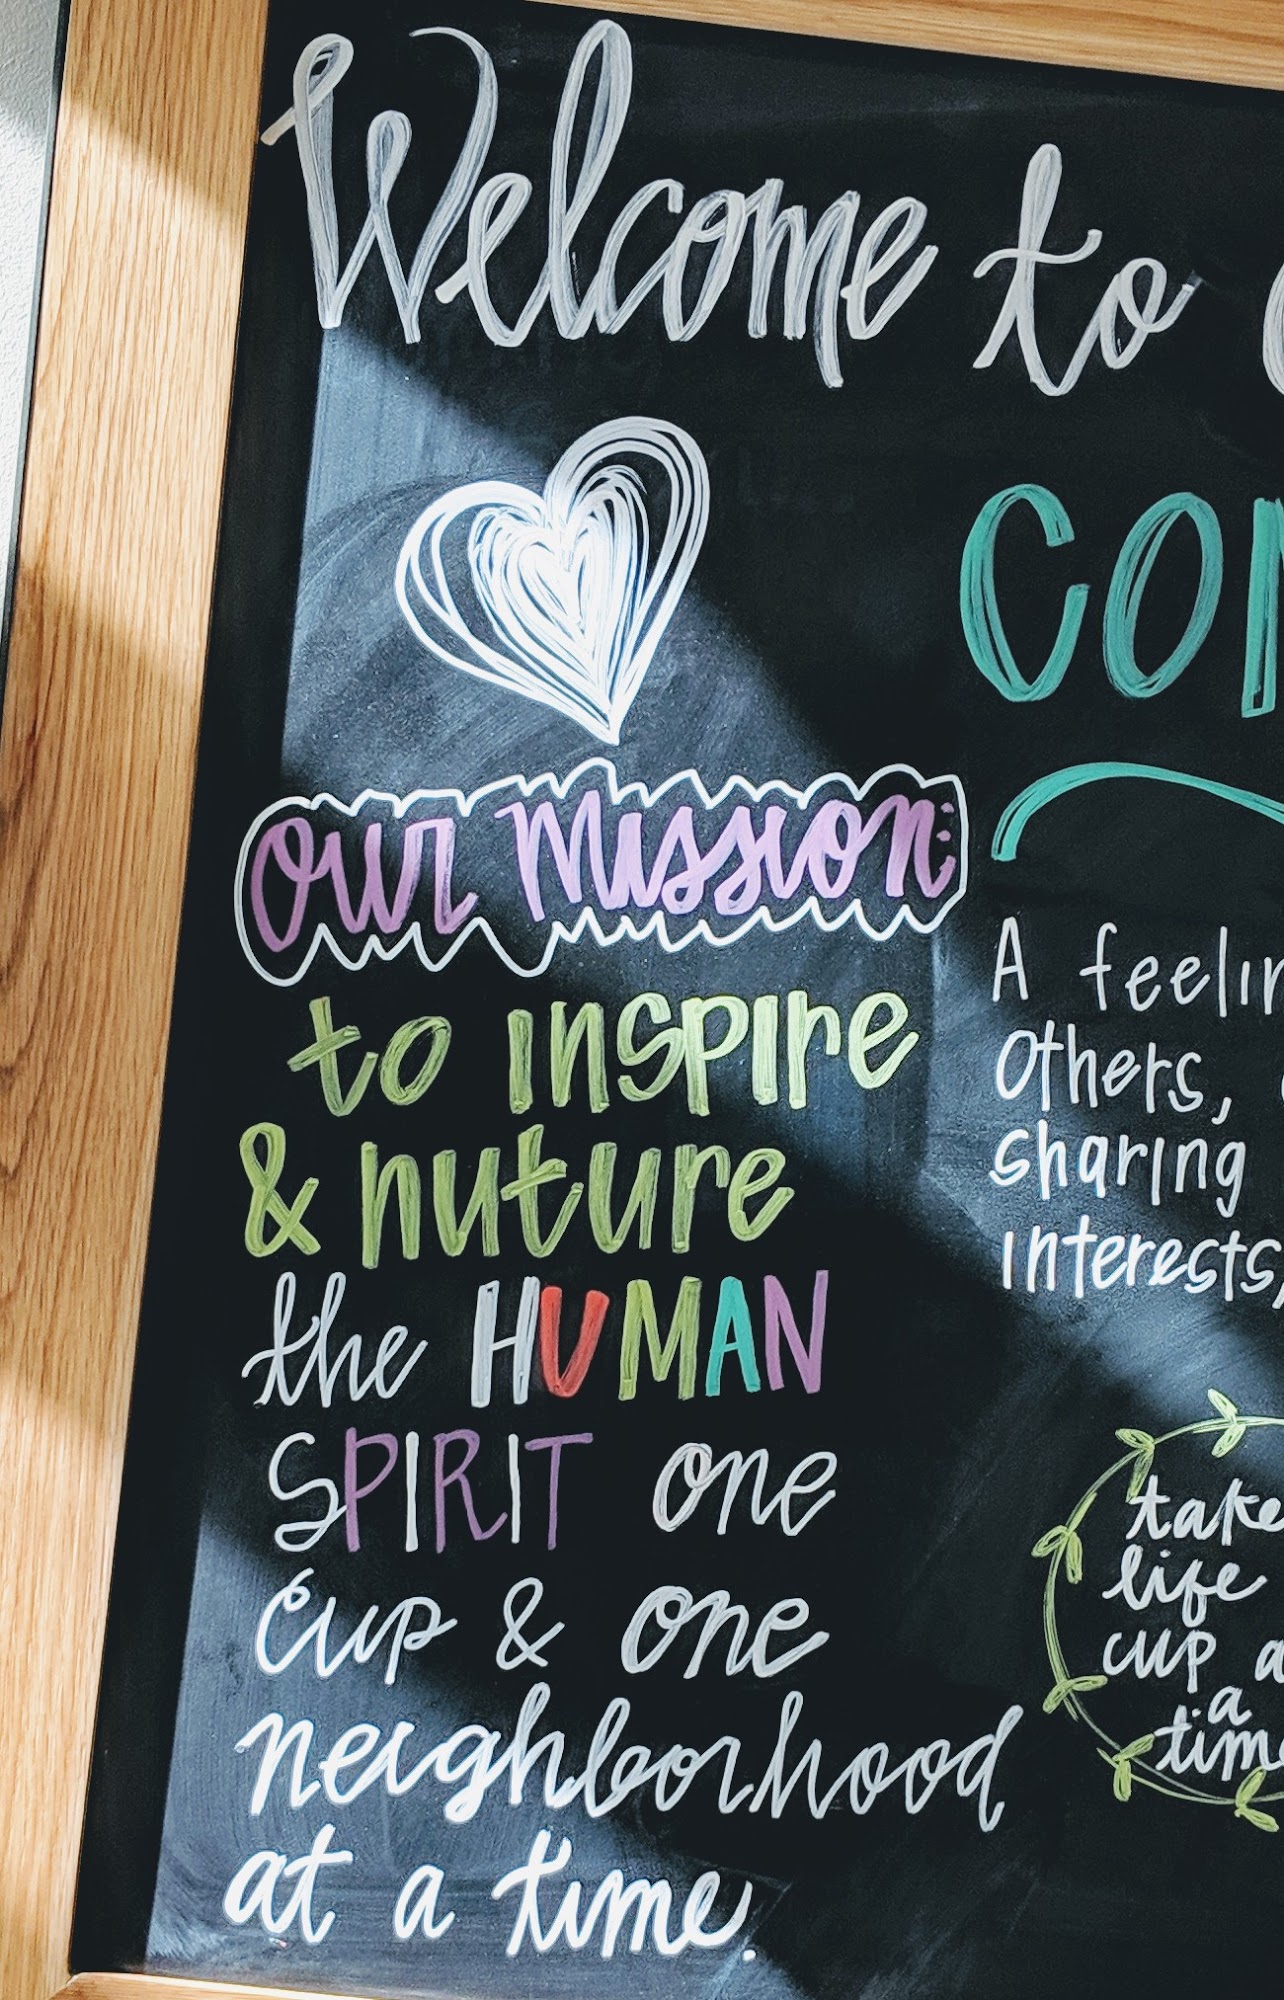 Welcome to
Our Mission:
to inspire
& nuture
the HUMAN
SPIRIT one
cup & one
neighborhood
at a time.
A
others,
sharing
interests,
take
life
cup a
a